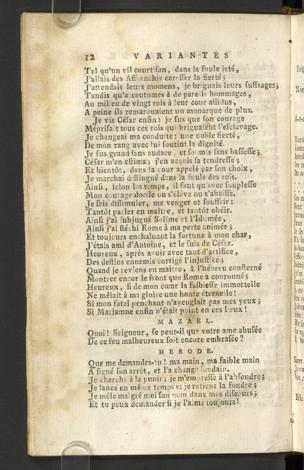 12 VARIANTES
Tel qu'un vil courtisan, dans la foule jeté,
J'allais des Affranchis caresser la fierté;
J'attendais leurs momens, je briguais leurs suffrages;
Tandis qu'accoutumés à de pareils hommages,
Au milieu de vingt rois à leur cour assidus,
A peine ils remarquaient un monarque de plus.
Je vis César enfin: je sus que son courage
Méprisait tous ces rois qui briguaient l'esclavage.
Je changeai ma conduite: une noble fierté,
De mon rang avec lui soutint la dignité.
Je fus grand sans audace, et soumis sans bassesse;
César m'en estima; j'en acquis sa tendresse;
Et bientôt, dans sa cour appelé par son choix,
Je marchai distingué dans la foule des rois.
Ainsi, selon les temps, il faut qu'avec souplesse
Mon courage docile ou s'élève ou s'abaisse.
Je sais dissimuler, me venger et souffrir:
Tantôt parler en maître, et tantôt obéir.
Ainsi j'ai subjugué Solime et l'Idumée,
Ainsi j'ai fléchi Rome à ma perte animée;
Et toujours enchaînant la fortune à mon char,
J'étais ami d'Antoine, et le suis de César.
Heureux, après avoir avec tant d'artifice,
Des destins ennemis corrigé l'injustice;
Quand je reviens en maître, à l'hébreu consterné
Montrer encor le front que Rome a couronné;
Heureux, si de mon cœur la faiblesse immortelle
Ne mêlait à ma gloire une honte éternelle!
Si mon fatal penchant n'aveuglait pas mes yeux;
Si Mariamne enfin n'était point en ces lieux!
MAZAEL.
Quoi! Seigneur, se peut-il que votre ame abusée
De ce feu malheureux soit encore embrasée?
HERODE.
Que me demandes-tu! ma main, ma faible main
A signé son arrêt, et l'a changé soudain.
Je cherche à la punir; je m'empresse à l'absoudre;
Je lance en même temps et je retiens la foudre;
Je mêle malgré moi son nom dans mes discours;
Et tu peux demander si je l'aime toujours!